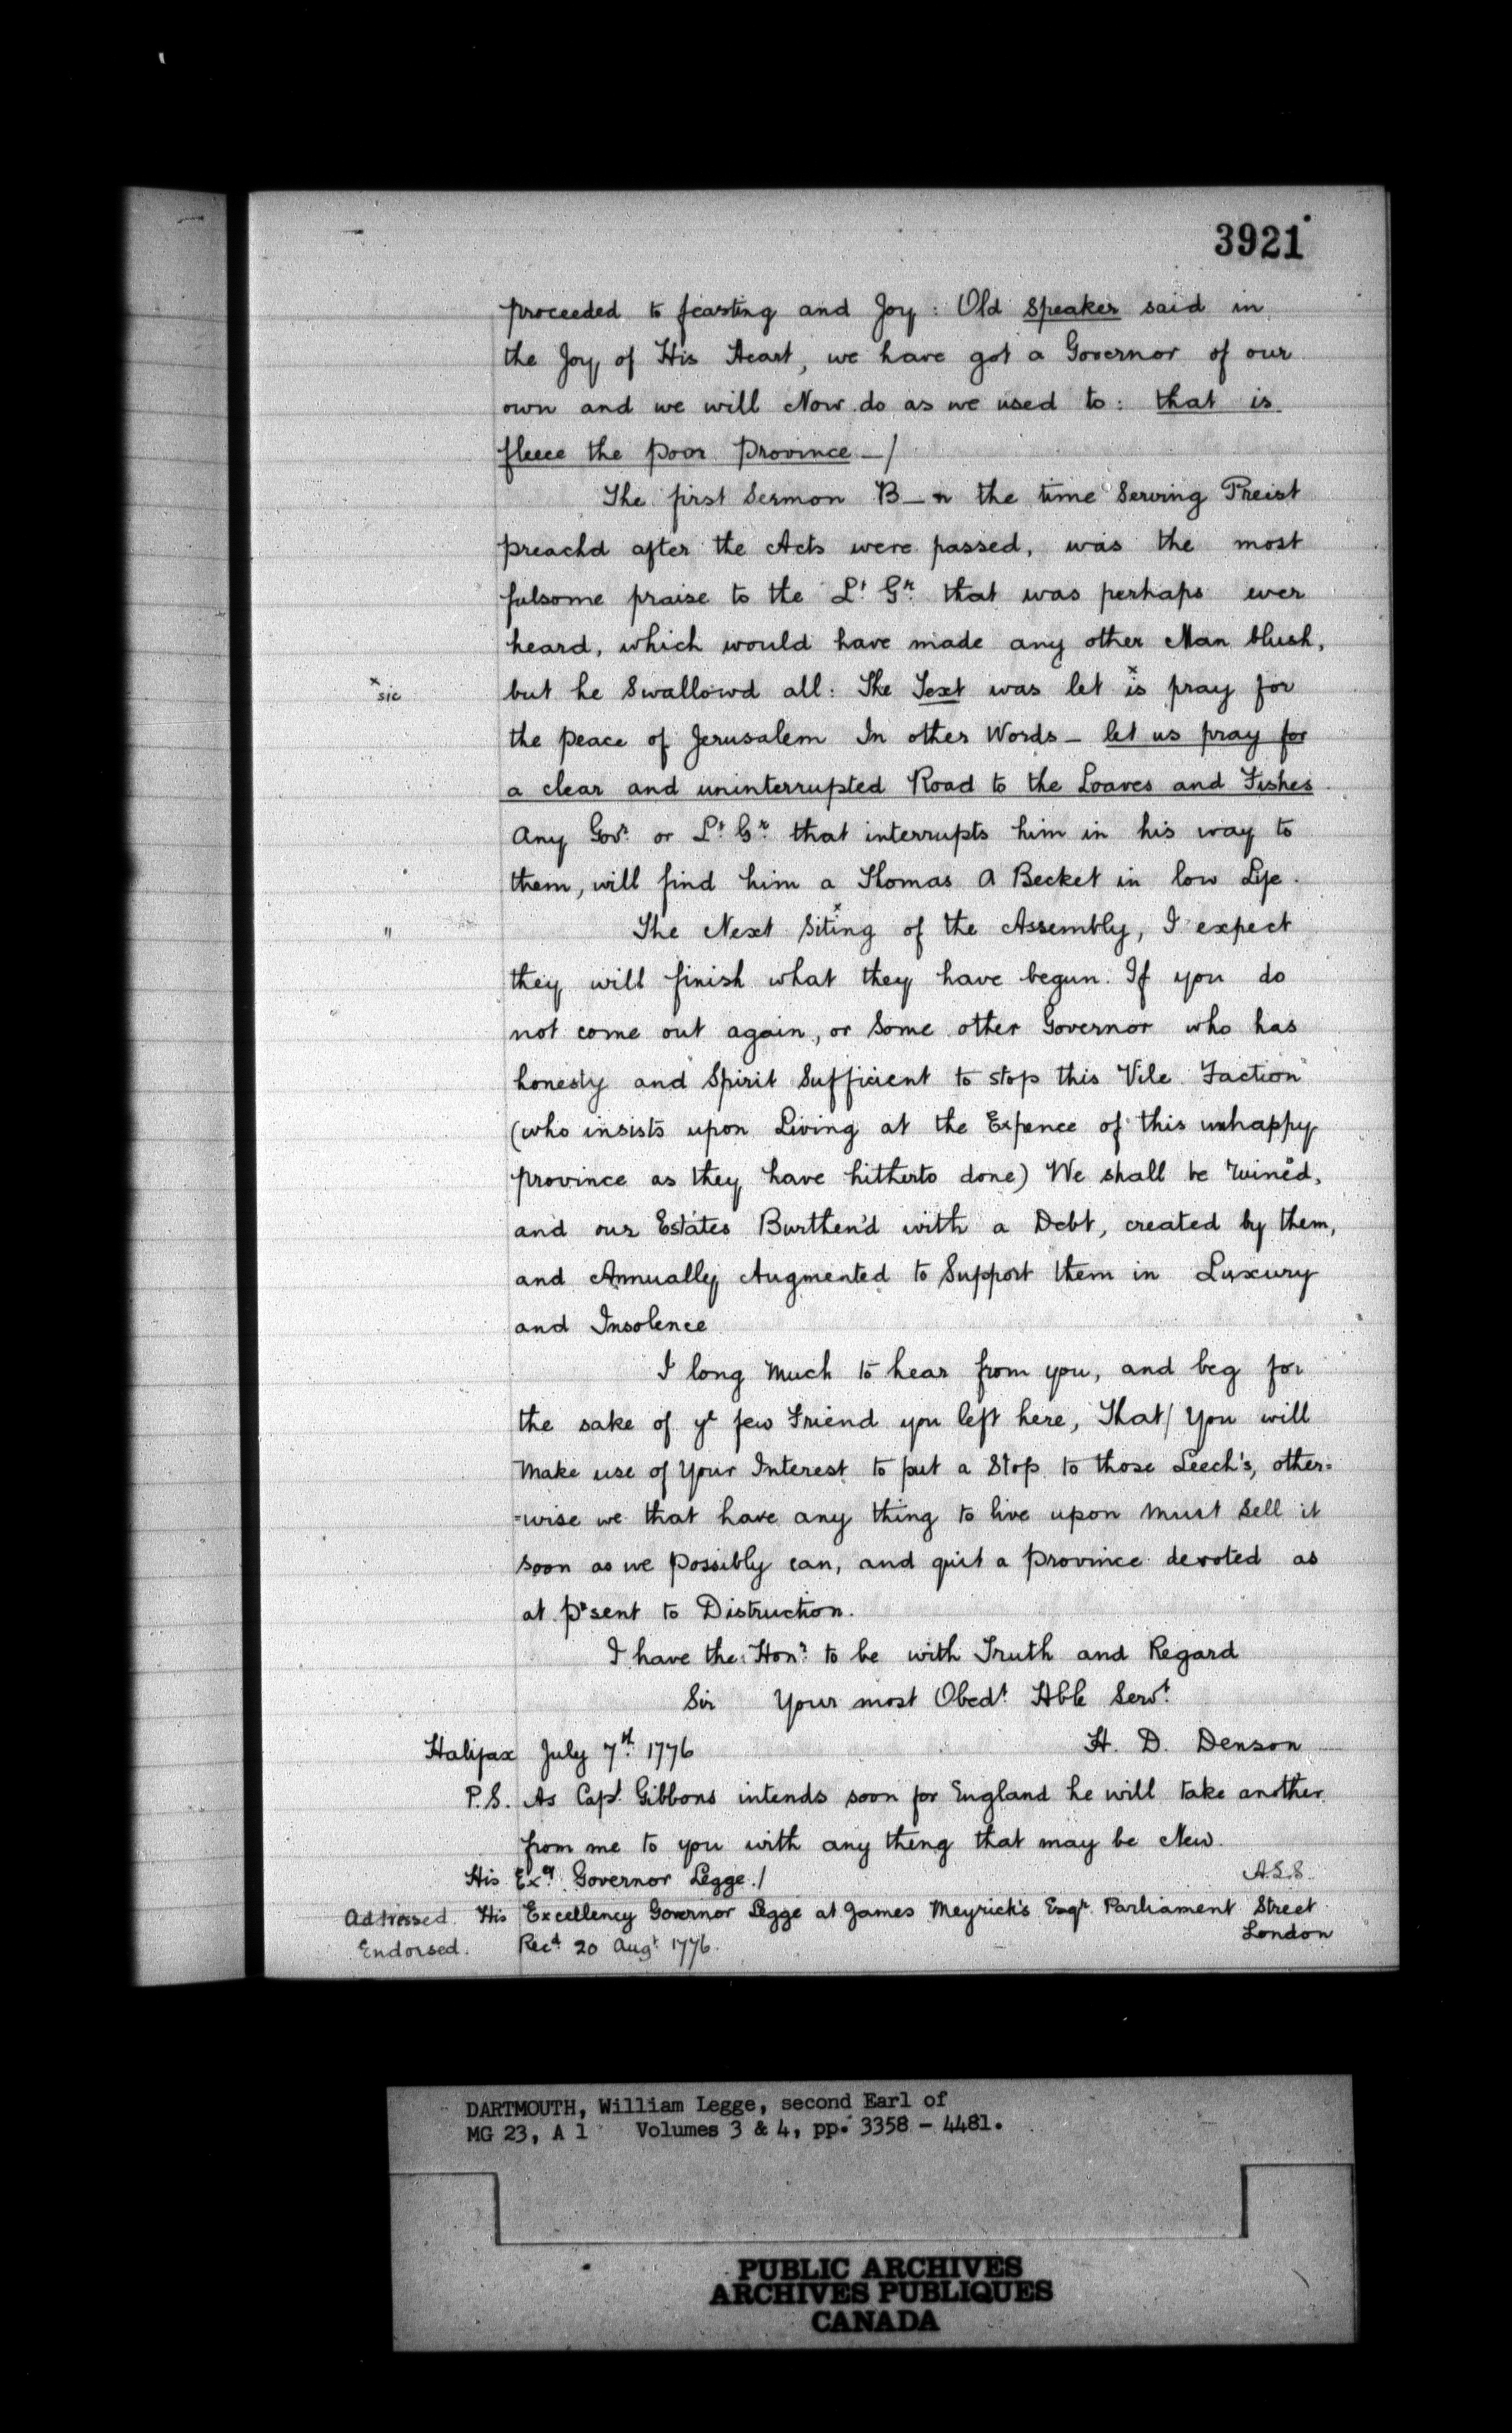 3921
proceeded to feasting and Joy : Old Speaker said in
the Joy of His Heart, we have got a Governor of our
own and we will Now do as we used to : that is
fleece the poor Province —/
The first Sermon B—n the time Serving Preist
preachd after the Acts were passed, was the most
fulsome praise to the Lt Gr that was perhaps ever
heard, which would have made any other Man blush,
x sic
but he Swallowd all : The Text was let is x pray for
the peace of Jerusalem In other Words — let us pray for
a clear and uninterrupted Road to the Loaves and Fishes
Any Govr or Lt Gr that interrupts him in his way to
them, will find him a Thomas A Becket in low Life.
"
The Next Siting x of the Assembly, I expect
they will finish what they have begun. If you do
not come out again, or Some other Governor who has
honesty and Spirit Sufficient to stop this Vile Faction
(who insists upon Living at the Expence of this unhappy
province as they have hitherto done) We shall be ruined,
and our Estates Burthen'd with a Debt, created by them,
and Annually Augmented to Support them in Luxury
and Insolence
I long much to hear from you, and beg for
the sake of ye few Friend you left here, That/ You will
Make use of Your Interest to put a Stop to those Leech's, other=
=wise we that have any thing to live upon must Sell it
soon as we possibly can, and quit a province devoted as
at prsent to Distruction.
I have the Honr to be with Truth and Regard
Sir Your most Obedt Hble Servt
H. D. Denson
Halifax July 7th 1776
P.S. As Capt Gibbons intends soon for England he will take another
from me to you with any thing that may be New.
His Exy Governor Legge./
A.L.S.
Addressed. His Excellency Governor Legge at James Meyrick's Esqr Parliament Street
London
Endorsed. Recd 20 Augt 1776.
DARTMOUTH, William Legge, second Earl of
MG 23, A 1 Volumes 3 & 4, pp. 3358 - 4481.
PUBLIC ARCHIVES
ARCHIVES PUBLIQUES
CANADA